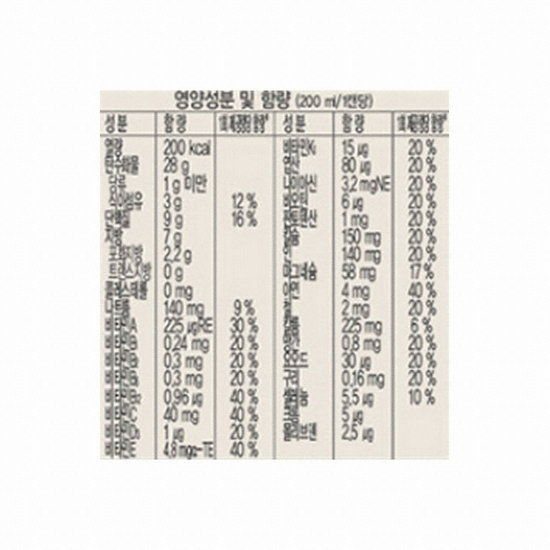 영양성분 및 함량 (200 ml/1캔당)
성분 함량 성분 함량
열량 200 kcal
탄수화물 28 g
당류 1 g 미만
식이섬유 3 g 12 %
단백질 9 g 16 %
지방 7 g
포화지방 2,2 g
트랜스지방 0 g
콜레스테롤 0 mg
나트륨 140 mg 9 %
비타민A 225 μgRE 30 %
비타민B₁ 0,24 mg 20 %
비타민B₂ 0,3 mg 20 %
비타민B₆ 0,3 mg 20 %
비타민B₁₂ 0,96 μg 40 %
비타민C 40 mg 40 %
비타민D₃ 1 μg 20 %
비타민E 4,8 mgα-TE 40 %
비타민K₁ 15 μg 20 %
엽산 80 μg 20 %
나이아신 3,2 mgNE 20 %
비오틴 6 μg 20 %
판토텐산 1 mg 20 %
칼슘 150 mg 20 %
인 140 mg 20 %
마그네슘 58 mg 17 %
아연 4 mg 40 %
철 2 mg 20 %
칼륨 225 mg 6 %
망간 0,8 mg 20 %
요오드 30 μg 20 %
구리 0,16 mg 20 %
셀레늄 5,5 μg 10 %
크롬 5 μg
몰리브덴 2,5 μg